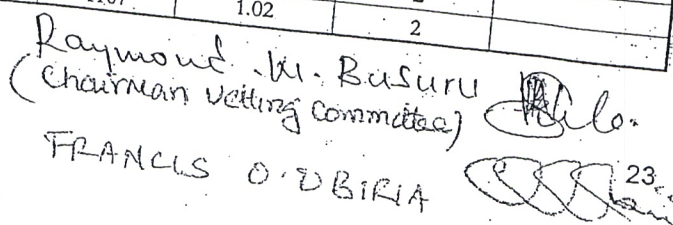 1.02
2
Raymond .W. Busuru
(Chairman Vetting Committee)
FRANCIS O. OBIRIA
23